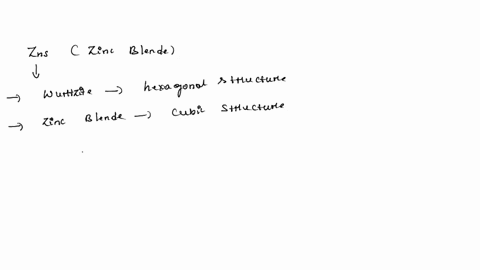 Zns ( Zinc Blende)
↓
→ Wurtzite → hexagonal structure
→ Zinc Blende → Cubic structure